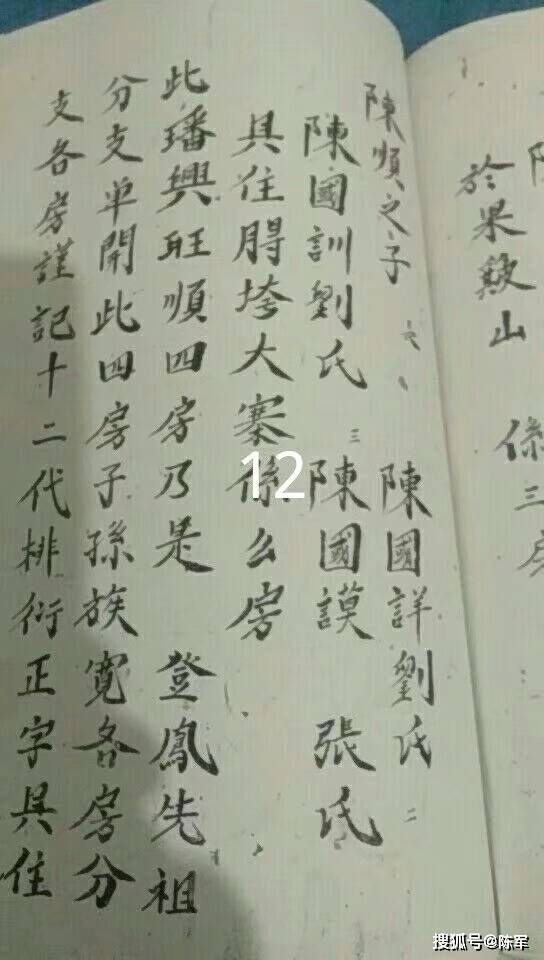 於果皴山
係三房
陳順之子
陳國詳劉氏二
陳國訓劉氏三
陳國謨張氏
具住㝵垮大寨係么房
此璠興旺順四房乃是登鳳先祖
分支单開此四房子孫族寬各房分
支各房謹記十二代排衍正字具住
12
搜狐号@陈军